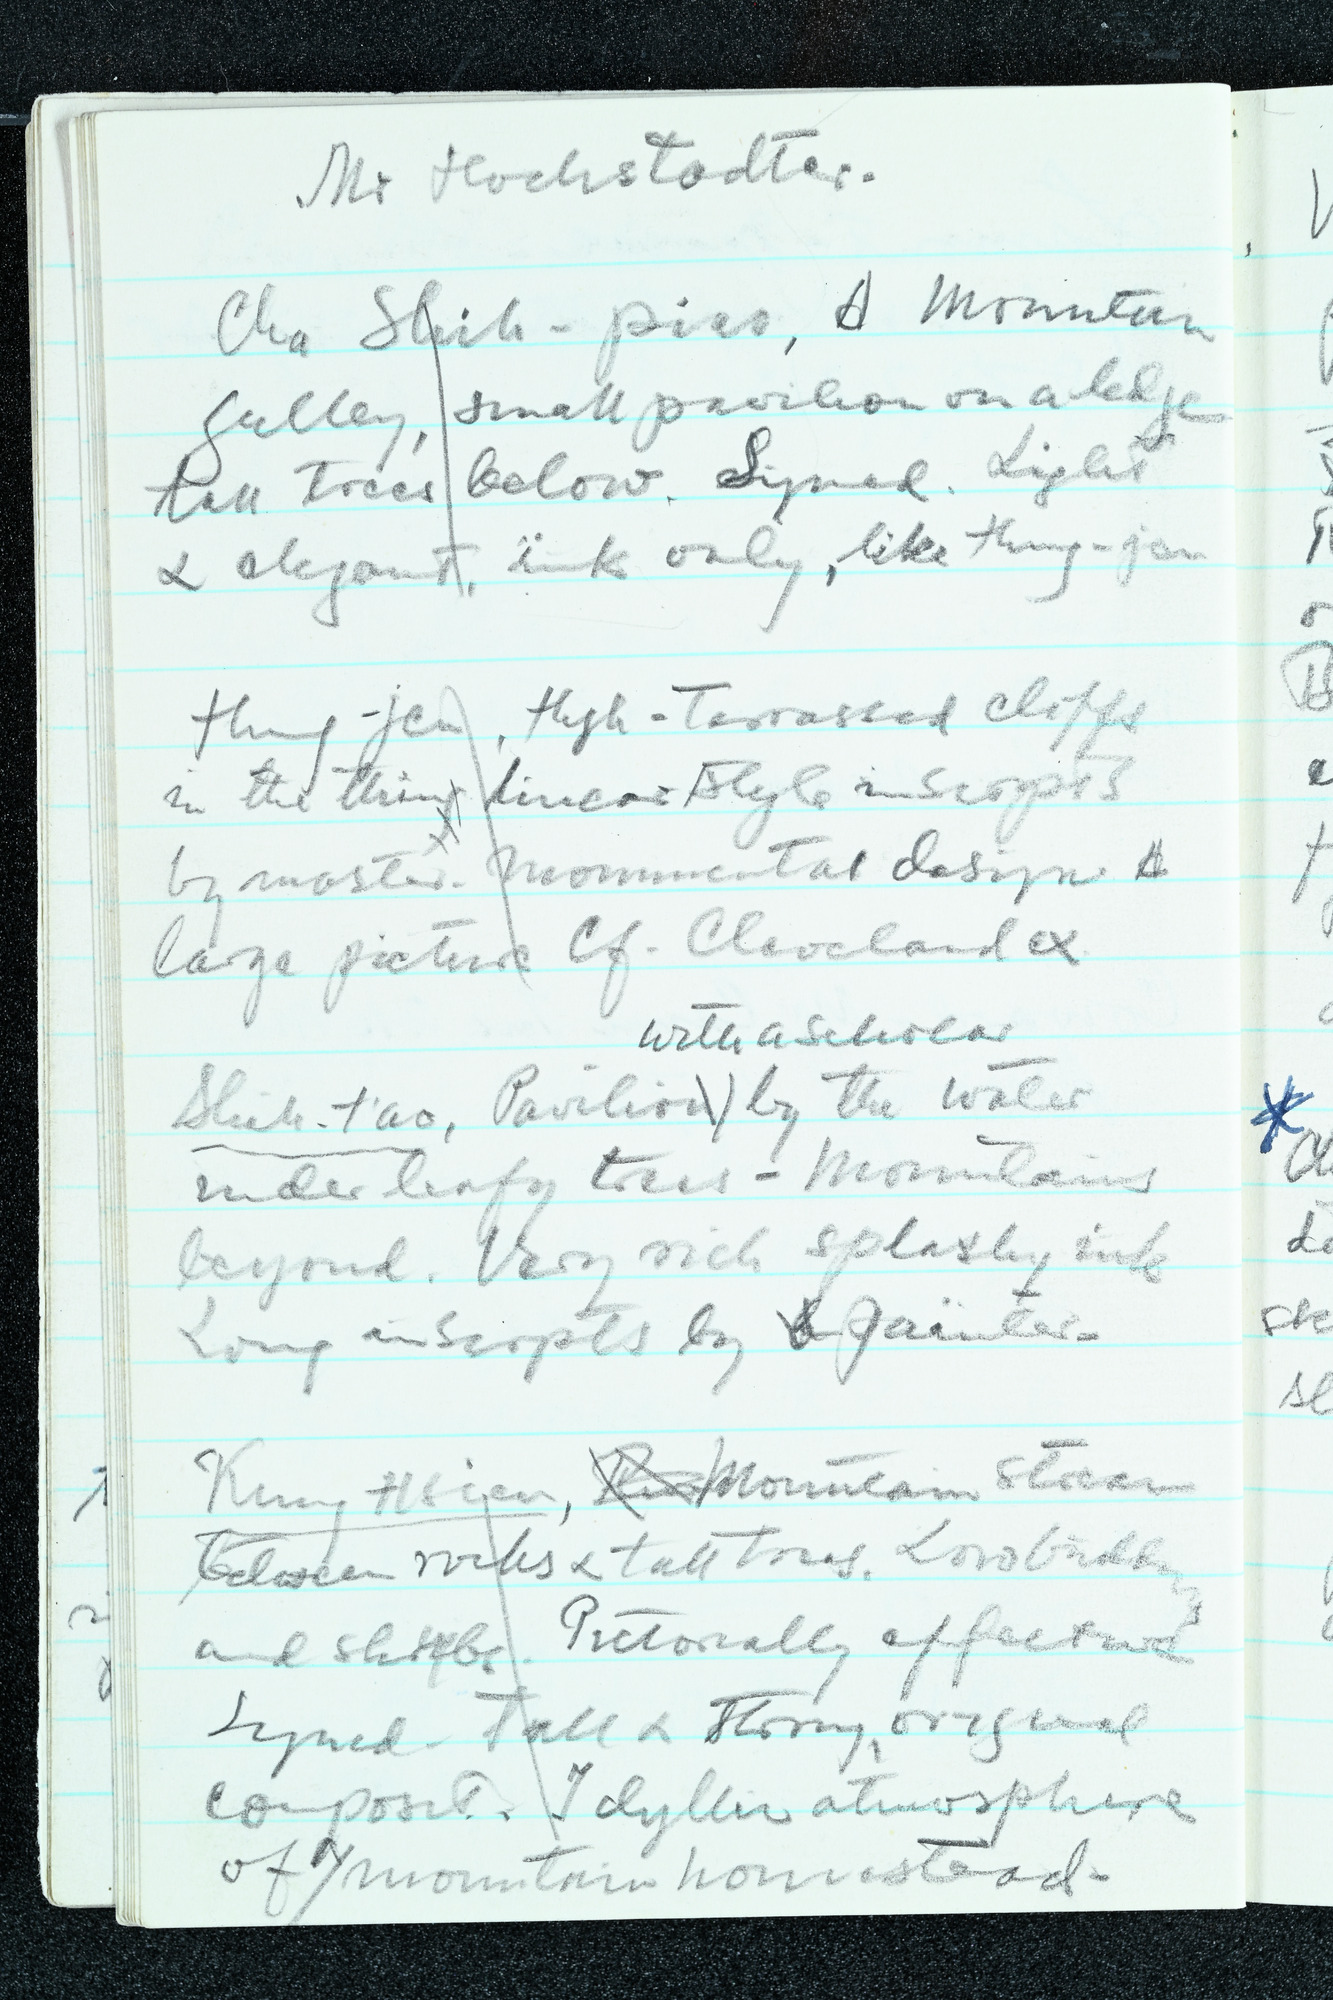 Mr Hochstadter.
Cha Shih-piao, A Mountain
gulley, small pavilion on a ledge
tall trees below. Signed. Light
& elegant, ink only, like Hung-jen
Hung-jen, High-terrassed cliffs
in the thin linear style inscripts
by master. Monumental design A
large picture Cf. Cleveland ex
with a scholar
Shih-t'ao, Pavilion by the water
under leafy trees - Mountains
beyond. Very rich splashy ink
Long inscripts by painter.
Kung Hsien, Mountain stream
between rocks & tall trees. Low
and Pictorially effective
Signed. Tall & strong, original
composit. Idyllic atmosphere
of mountain homestead.